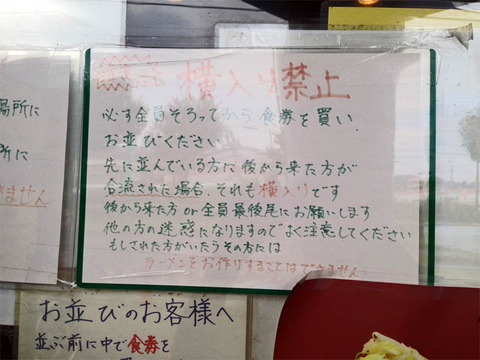 横入り禁止
必ず全員そろってから、食券を買い、
お並びください
先に並んでいる方に後から来た方が
合流された場合、それも横入りです
後から来た方or全員最後尾にお願いします
他の方の迷惑になりますのでよく注意してください
もしされた方がいたらその方には
ラーメンをお作りすることはできません!
場所に
所に
ません
お並びのお客様へ
並ぶ前に中で食券を